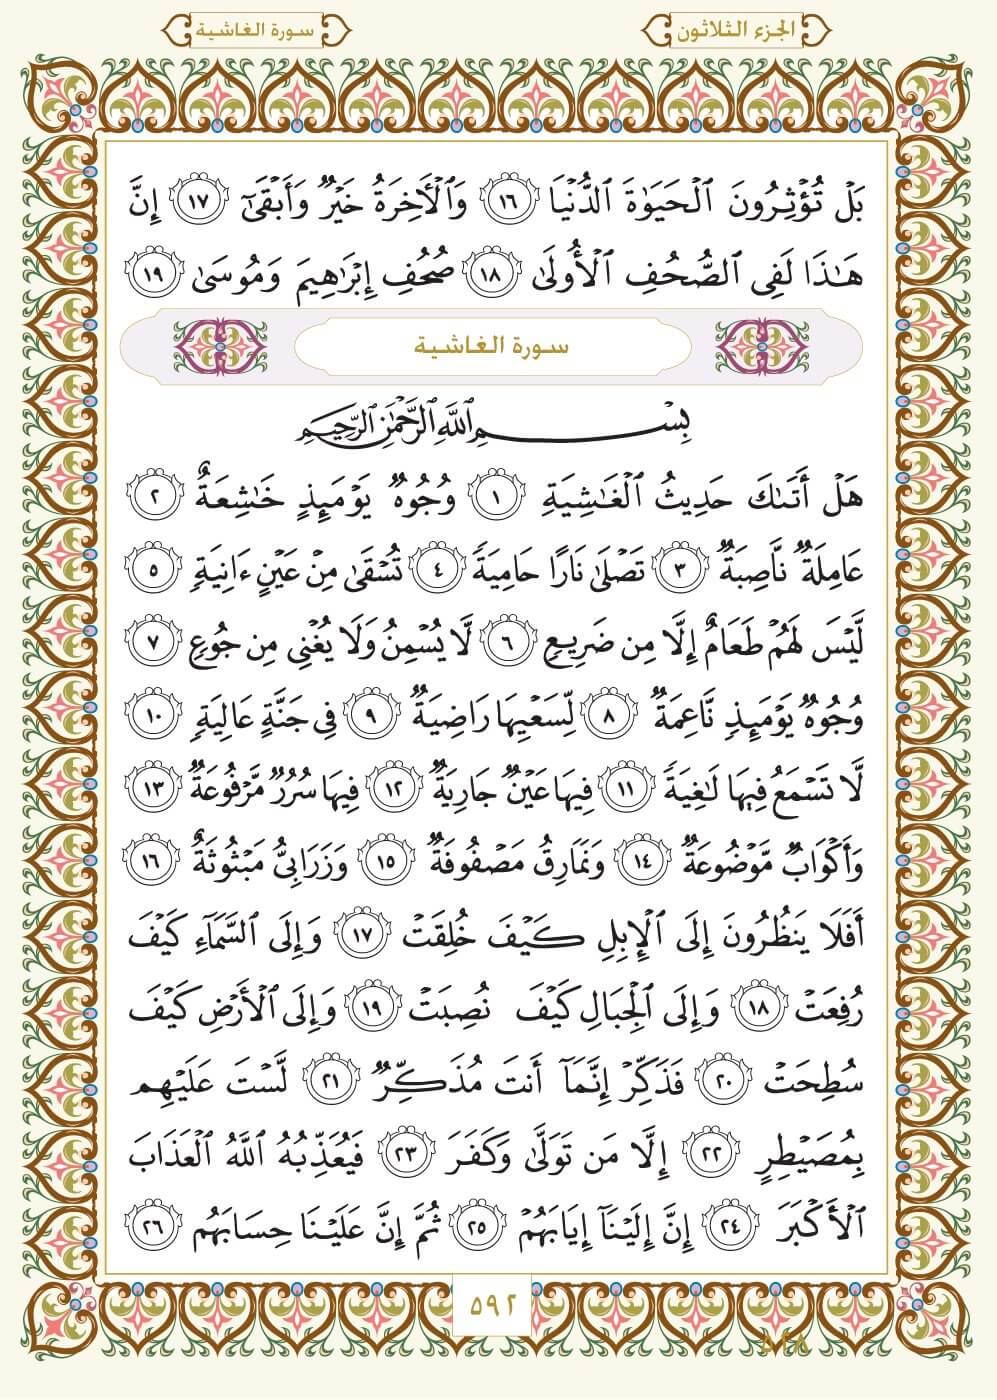 الجزء الثلاثون
سورة الغاشية
بَلْ تُؤْثِرُونَ ٱلْحَيَوٰةَ ٱلدُّنْيَا ١٦ وَٱلْأَخِرَةُ خَيْرٌ وَأَبْقَىٰٓ ١٧ إِنَّ
هَٰذَا لَفِى ٱلصُّحُفِ ٱلْأُولَىٰ ١٨ صُحُفِ إِبْرَٰهِيمَ وَمُوسَىٰ ١٩
سورة الغاشية
بِسْمِ ٱللَّهِ ٱلرَّحْمَٰنِ ٱلرَّحِيمِ
هَلْ أَتَىٰكَ حَدِيثُ ٱلْغَٰشِيَةِ ١ وُجُوهٌ يَوْمَئِذٍ خَٰشِعَةٌ ٢
عَامِلَةٌ نَّاصِبَةٌ ٣ تَصْلَىٰ نَارًا حَامِيَةً ٤ تُسْقَىٰ مِنْ عَيْنٍ ءَانِيَةٍ ٥
لَّيْسَ لَهُمْ طَعَامٌ إِلَّا مِن ضَرِيعٍ ٦ لَّا يُسْمِنُ وَلَا يُغْنِى مِن جُوعٍ ٧
وُجُوهٌ يَوْمَئِذٍ نَّاعِمَةٌ ٨ لِّسَعْيِهَا رَاضِيَةٌ ٩ فِى جَنَّةٍ عَالِيَةٍ ١٠
لَّا تَسْمَعُ فِيهَا لَٰغِيَةً ١١ فِيهَا عَيْنٌ جَارِيَةٌ ١٢ فِيهَا سُرُرٌ مَّرْفُوعَةٌ ١٣
وَأَكْوَابٌ مَّوْضُوعَةٌ ١٤ وَنَمَارِقُ مَصْفُوفَةٌ ١٥ وَزَرَابِىُّ مَبْثُوثَةٌ ١٦
أَفَلَا يَنظُرُونَ إِلَى ٱلْإِبِلِ كَيْفَ خُلِقَتْ ١٧ وَإِلَى ٱلسَّمَآءِ كَيْفَ
رُفِعَتْ ١٨ وَإِلَى ٱلْجِبَالِ كَيْفَ نُصِبَتْ ١٩ وَإِلَى ٱلْأَرْضِ كَيْفَ
سُطِحَتْ ٢٠ فَذَكِّرْ إِنَّمَآ أَنتَ مُذَكِّرٌ ٢١ لَّسْتَ عَلَيْهِم
بِمُصَيْطِرٍ ٢٢ إِلَّا مَن تَوَلَّىٰ وَكَفَرَ ٢٣ فَيُعَذِّبُهُ ٱللَّهُ ٱلْعَذَابَ
ٱلْأَكْبَرَ ٢٤ إِنَّ إِلَيْنَآ إِيَابَهُمْ ٢٥ ثُمَّ إِنَّ عَلَيْنَا حِسَابَهُم ٢٦
٥٩٢